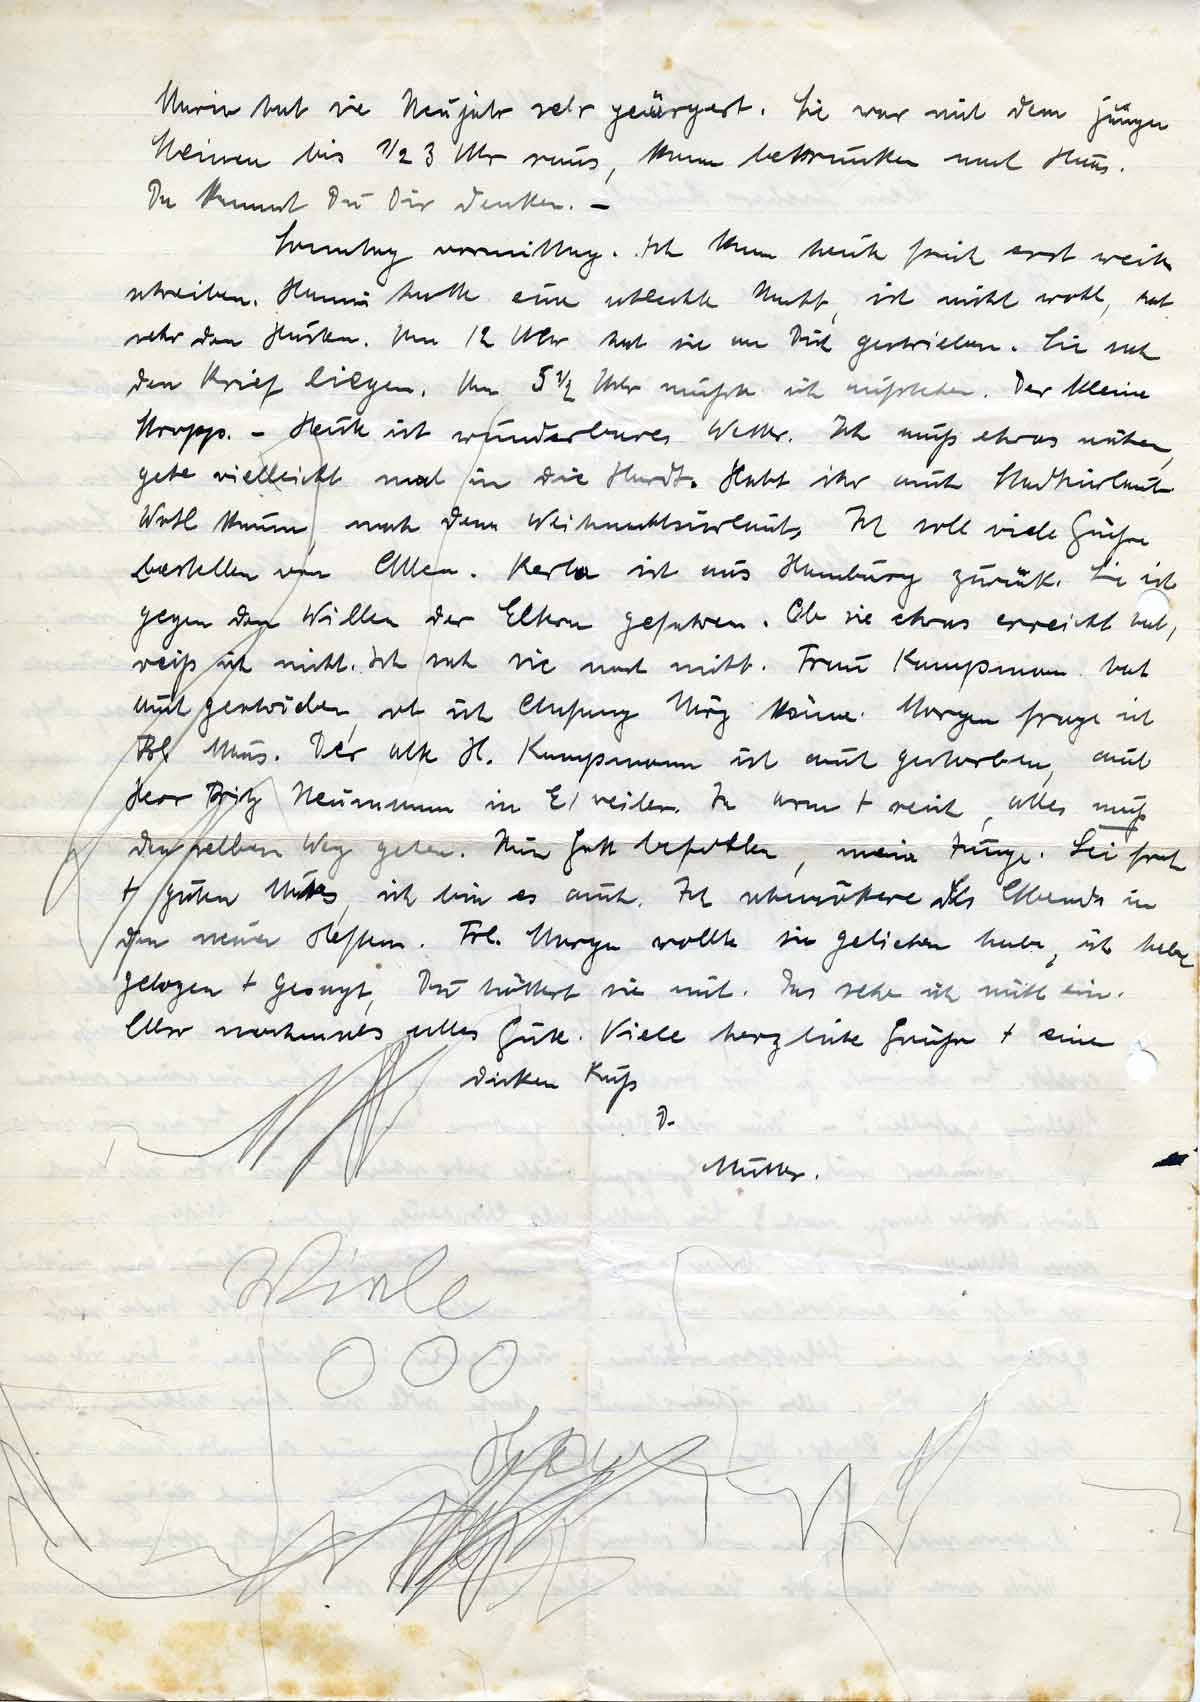 Maria hat sie Neujahr sehr geärgert. Sie war mit dem jungen
Heinen bis 1/2 3 Uhr raus, kam betrunken nach Haus.
Du kannst Du Dir denken. –
Sonntag vormittag. Ich kam heute früh erst weiter
schreiben. hatte eine schlechte Nacht, ist nicht wohl, hat
sehr den Husten. Um 12 Uhr hat sie an Dich geschrieben. Sie sah
den Brief liegen. Um 5 1/2 Uhr mußte ich aufstehen. Der kleine
Stropp. – Heute ist wunderbares Wetter. Ich muß etwas nähen,
gehe vielleicht mal in die Hardt. Habt ihr auch Stadturlaub
Wohl kaum, nach dem Weihnachtsurlaub. Ich soll viele Grüße
bestellen von Allen. Karla ist aus Hamburg zurück. Sie ist
gegen den Willen der Eltern gefahren. Ob sie etwas erreicht hat,
weiß ich nicht. Ich sah sie noch nicht. Frau Kampsmann hat
auch geschrieben, ob ich Anfang März käme. Morgen frage ich
Maus. Der alte H. Kampsmann ist auch gestorben, auch
Herr Fritz Neumann in Ja arm + reich, alles muß
denselben Weg gehen. Nun Gott befohlen, mein Junge. Sei froh
+ guten Mutes, ich bin es auch. Ich schmökere des Abends in
den neuen Heften. Frl. wollte sie geliehen habe, ich habe
gelogen + gesagt, Du hättest sie mit. Das sehe ich nicht ein.
Also nochmals alles Gute. Viele herzliche Grüße + eine
dicken Kuß
D.
Mutter.
Viele
OOO